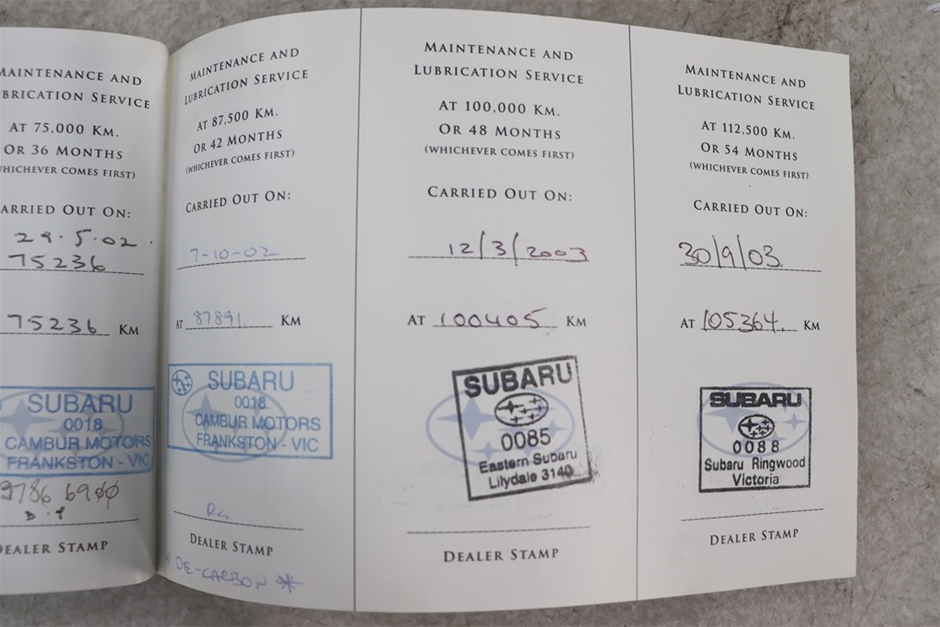 MAINTENANCE AND
BRICATION SERVICE
AT 75,000 KM.
OR 36 MONTHS
(WHICHEVER COMES FIRST)
CARRIED OUT ON:
29.5.02.
75236
75236 KM
SUBARU
0018
CAMBUR MOTORS
FRANKSTON - VIC
9786 6900
DEALER STAMP
MAINTENANCE AND
LUBRICATION SERVICE
AT 87,500 KM.
OR 42 MONTHS
(WHICHEVER COMES FIRST)
CARRIED OUT ON:
7-10-02
AT 87891. KM
SUBARU
0018
CAMBUR MOTORS
FRANKSTON - VIC
DEALER STAMP
DE-CARBON *
MAINTENANCE AND
LUBRICATION SERVICE
AT 100,000 KM.
OR 48 MONTHS
(WHICHEVER COMES FIRST)
CARRIED OUT ON:
12/3/2003
AT 100405 KM
SUBARU
0085
Eastern Subaru
Lilydale 3140
DEALER STAMP
MAINTENANCE AND
LUBRICATION SERVICE
AT 112,500 KM.
OR 54 MONTHS
(WHICHEVER COMES FIRST)
CARRIED OUT ON:
30/9/03.
AT 105364. KM
SUBARU
0088
Subaru Ringwood
Victoria
DEALER STAMP